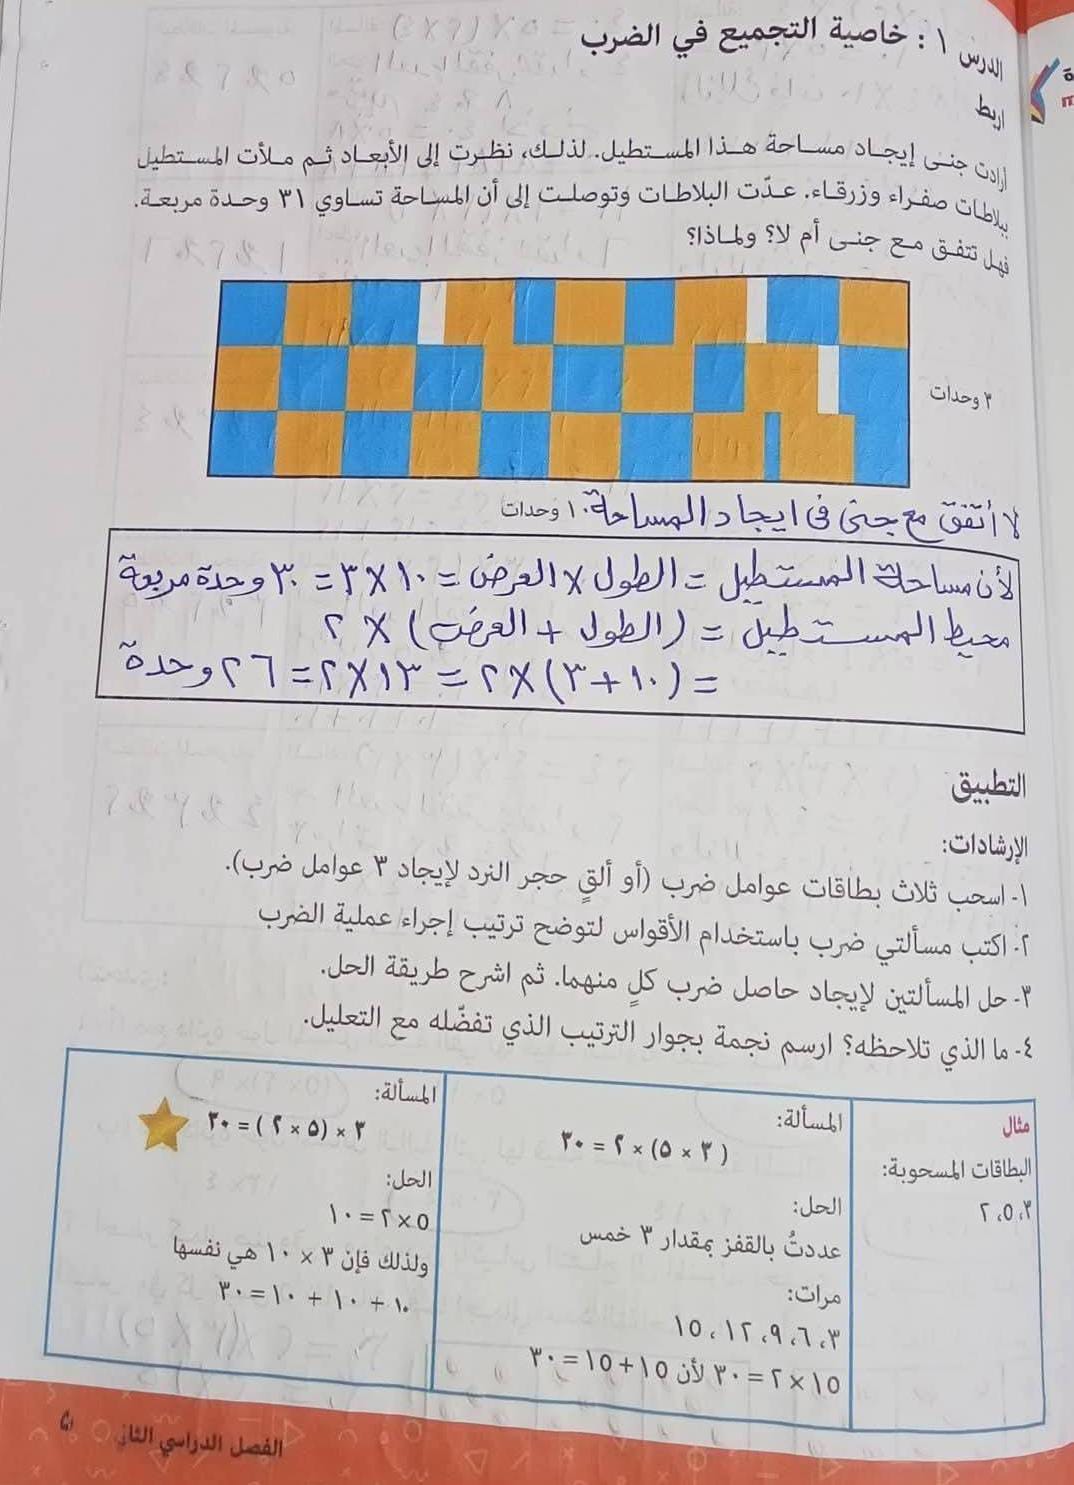 الدرس ١ : خاصية التجميع في الضرب
اربط
أرادت جنى إيجاد مساحة هذا المستطيل. لذلك، نظرت إلى الأبعاد ثم ملأت المستطيل
ببلاطات صفراء وزرقاء. عدّت البلاطات وتوصلت إلى أن المساحة تساوي ٣١ وحدة مربعة.
فهل تتفق مع جنى أم لا؟ ولماذا؟
٣ وحدات
١٠ وحدات
لا أتفق مع جنى في ايجاد المساحة
لأن مساحة المستطيل = الطول × العرض = ١٠ × ٣ = ٣٠ وحدة مربعة
محيط المستطيل = (الطول + العرض) × ٢
= (١٠ + ٣) × ٢ = ١٣ × ٢ = ٢٦ وحدة
التطبيق
الإرشادات:
١- اسحب ثلاث بطاقات عوامل ضرب (أو ألقِ حجر النرد لإيجاد ٣ عوامل ضرب).
٢- اكتب مسألتي ضرب باستخدام الأقواس لتوضح ترتيب إجراء عملية الضرب
٣- حل المسألتين لإيجاد حاصل ضرب كلٍ منهما. ثم اشرح طريقة الحل.
٤- ما الذي تلاحظه؟ ارسم نجمة بجوار الترتيب الذي تفضله مع التعليل.
مثال
البطاقات المسحوبة:
٣، ٥، ٢
المسألة:
( ٣ × ٥) × ٢ = ٣٠
الحل:
عددتُ بالقفز بمقدار ٣ خمس
مرات:
٣، ٦، ٩، ١٢، ١٥
١٥ × ٢ = ٣٠ لأن ١٥ + ١٥ = ٣٠
المسألة:
٣ × (٥ × ٢ ) = ٣٠
الحل:
٥ × ٢ = ١٠
ولذلك فإن ٣ × ١٠ هي نفسها
١٠ + ١٠ + ١٠ = ٣٠
الفصل الدراسي الثاني